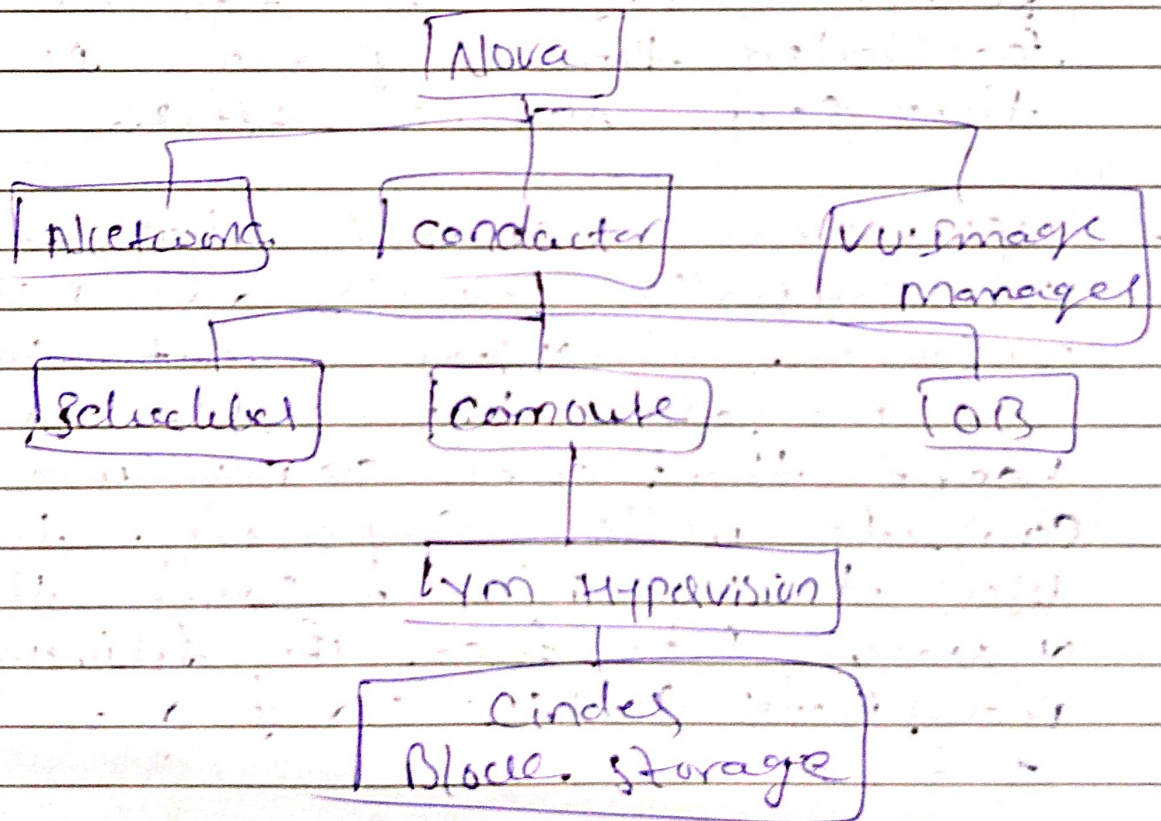 Nova
Network
Conductor
VV. Image
Manager
Scheduler
Compute
DB
VM Hypervision
Cinder
Block Storage